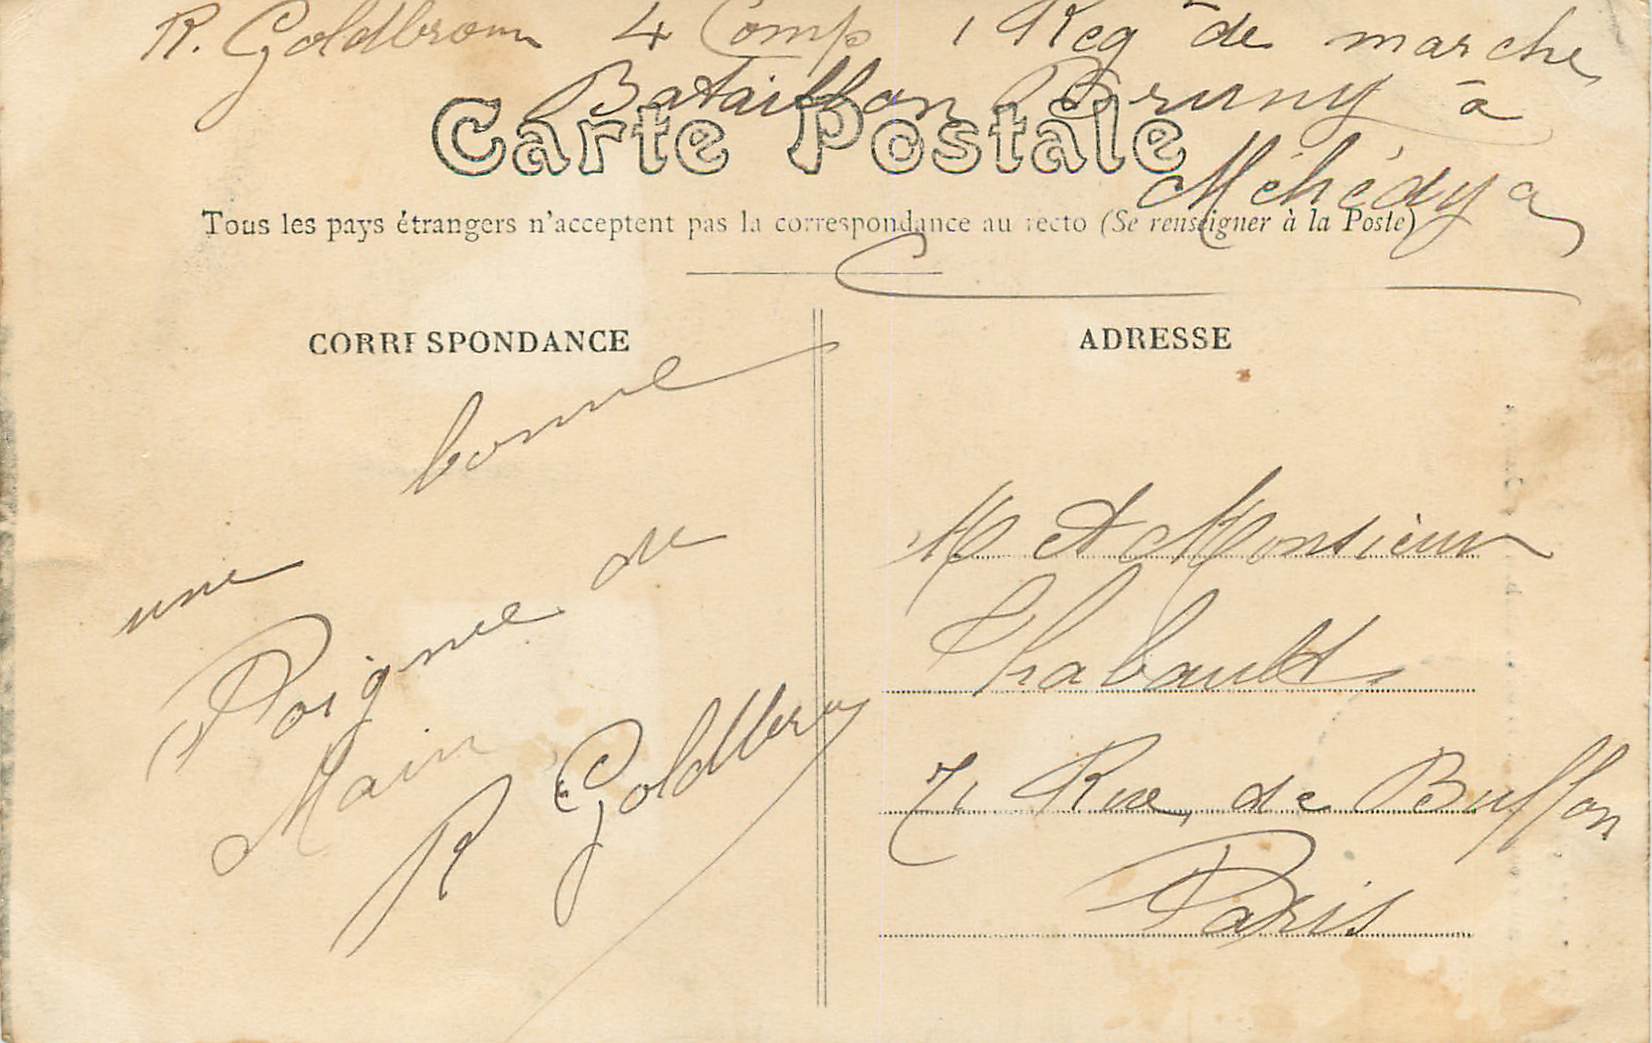 R. Goldbrom 4 Comp 1 Reg de marche
Bataillon Bruny à
Méhédya
Carte Postale
Tous les pays étrangers n'acceptent pas la correspondance au recto (Se renseigner à la Poste)
CORRESPONDANCE
bonne
une
Poignee de
Main
R Goldbrom
ADRESSE
M et Monsieur
Thabault
71 Rue de Buffon
Paris